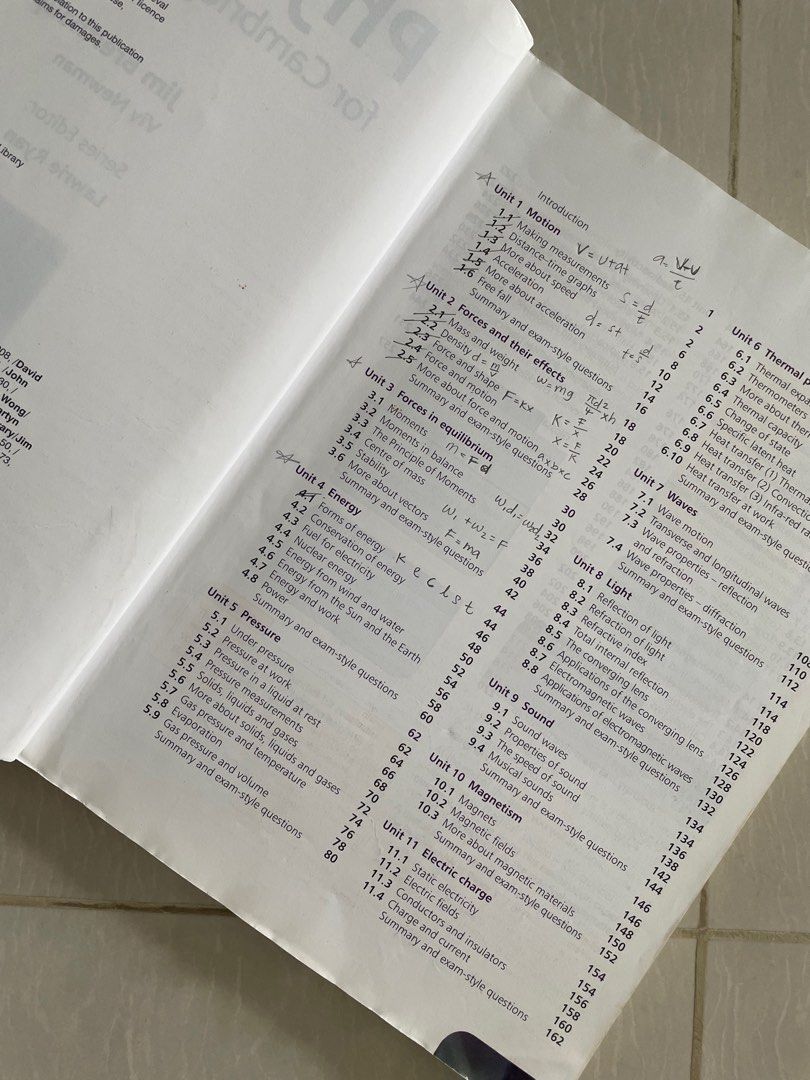 ation to this publication
aims for damages.
ibrary
/David
/John
Wong/
artyn
ary/Jim
Introduction 1
Unit 1 Motion 2
1.1 Making measurements 2
1.2 Distance-time graphs 6
1.3 More about speed 8
1.4 Acceleration 10
1.5 More about acceleration 12
1.6 Free fall 14
Summary and exam-style questions 16
V = u+at
s = d/t
d = st
Unit 2 Forces and their effects 18
2.1 Mass and weight 18
2.2 Density 20
d = m/v
2.3 Force and shape 22
2.4 Force and motion 24
2.5 More about force and motion 26
Summary and exam-style questions 28
w = mg
F = kx
K = F/x
x = F/K
axbxc
Unit 3 Forces in equilibrium 30
3.1 Moments 30
3.2 Moments in balance 32
3.3 The Principle of Moments 34
3.4 Centre of mass 36
3.5 Stability 38
3.6 More about vectors 40
Summary and exam-style questions 42
m = Fd
w₁d₁ = w₂d₂
w₁ + w₂ = F
F = ma
Unit 4 Energy 44
4.1 Forms of energy 44
4.2 Conservation of energy 46
4.3 Fuel for electricity 48
4.4 Nuclear energy 50
4.5 Energy from wind and water 52
4.6 Energy from the Sun and the Earth 54
4.7 Energy and work 56
4.8 Power 58
Summary and exam-style questions 60
Unit 5 Pressure 62
5.1 Under pressure 62
5.2 Pressure at work 64
5.3 Pressure in a liquid at rest 66
5.4 Pressure measurements 68
5.5 Solids, liquids and gases 70
5.6 More about solids, liquids and gases 72
5.7 Gas pressure and temperature 74
5.8 Evaporation 76
5.9 Gas pressure and volume 78
Summary and exam-style questions 80
Unit 6 Thermal p
6.1 Thermal expa
6.2 Thermometers
6.3 More about therm
6.4 Thermal capacity
6.5 Change of state
6.6 Specific latent heat
6.7 Heat transfer (1) Therma
6.8 Heat transfer (2) Convectio
6.9 Heat transfer (3) Infra-red ra
6.10 Heat transfer at work
Summary and exam-style questio
Unit 7 Waves
7.1 Wave motion
7.2 Transverse and longitudinal waves
7.3 Wave properties – reflection
and refraction
7.4 Wave properties – diffraction 110
Summary and exam-style questions 112
Unit 8 Light 114
8.1 Reflection of light 114
8.2 Refraction of light 118
8.3 Refractive index 120
8.4 Total internal reflection 122
8.5 The converging lens 124
8.6 Applications of the converging lens 126
8.7 Electromagnetic waves 128
8.8 Applications of electromagnetic waves 130
Summary and exam-style questions 132
Unit 9 Sound 134
9.1 Sound waves 134
9.2 Properties of sound 136
9.3 The speed of sound 138
9.4 Musical sounds 142
Summary and exam-style questions 144
Unit 10 Magnetism 146
10.1 Magnets 146
10.2 Magnetic fields 148
10.3 More about magnetic materials 150
Summary and exam-style questions 152
Unit 11 Electric charge 154
11.1 Static electricity 154
11.2 Electric fields 156
11.3 Conductors and insulators 158
11.4 Charge and current 160
Summary and exam-style questions 162